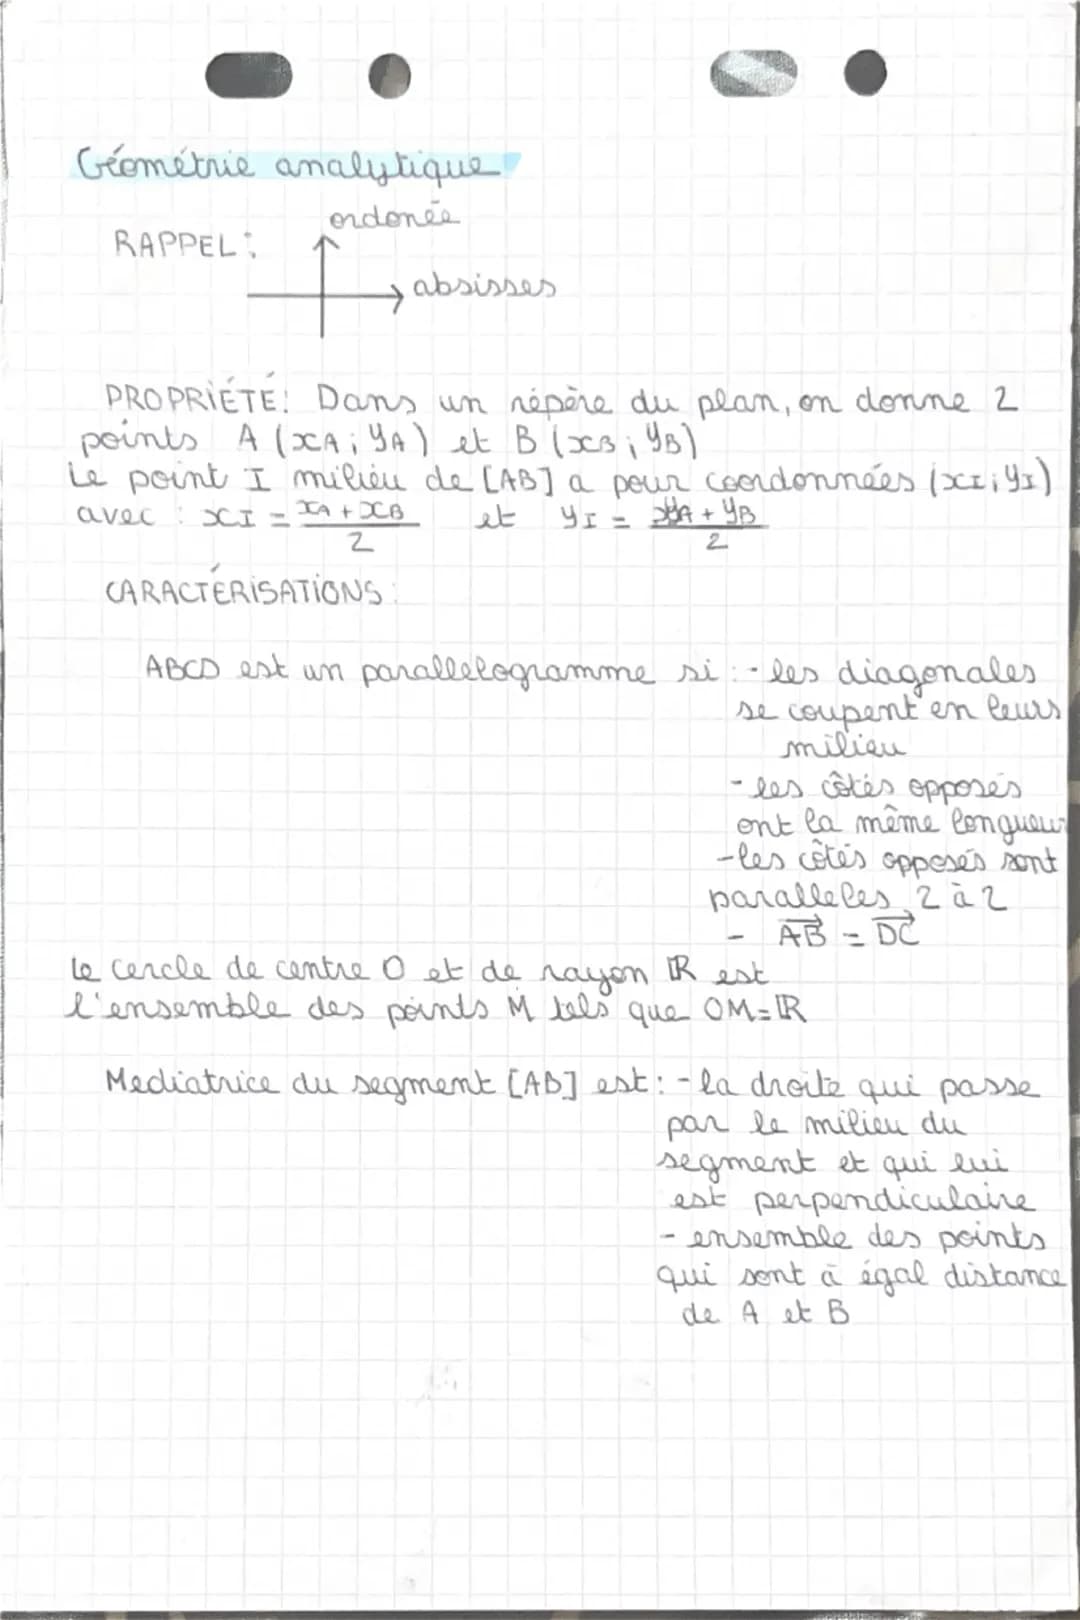 Géométrie analytique
ordonée
RAPPEL :
absisses
PROPRIÉTÉ: Dans un répère du plan, on donne 2
points A (xA ; yA) et B (xB ; yB)
Le point I milieu de [AB] a pour coordonnées (xI ; yI)
avec : xI = xA + xB / 2 et yI = yA + yB / 2
CARACTÉRISATIONS :
ABCD est un parallelogramme si : - les diagonales
se coupent en leurs
milieu
- les côtés opposés
ont la même longueur
- les côtés opposés sont
paralleles 2 à 2
- AB→ = DC→
Le cercle de centre O et de rayon ℝ est
l'ensemble des points M tels que OM = ℝ
Mediatrice du segment [AB] est : - la droite qui passe
par le milieu du
segment et qui lui
est perpendiculaire
- ensemble des points
qui sont à égal distance
de A et B